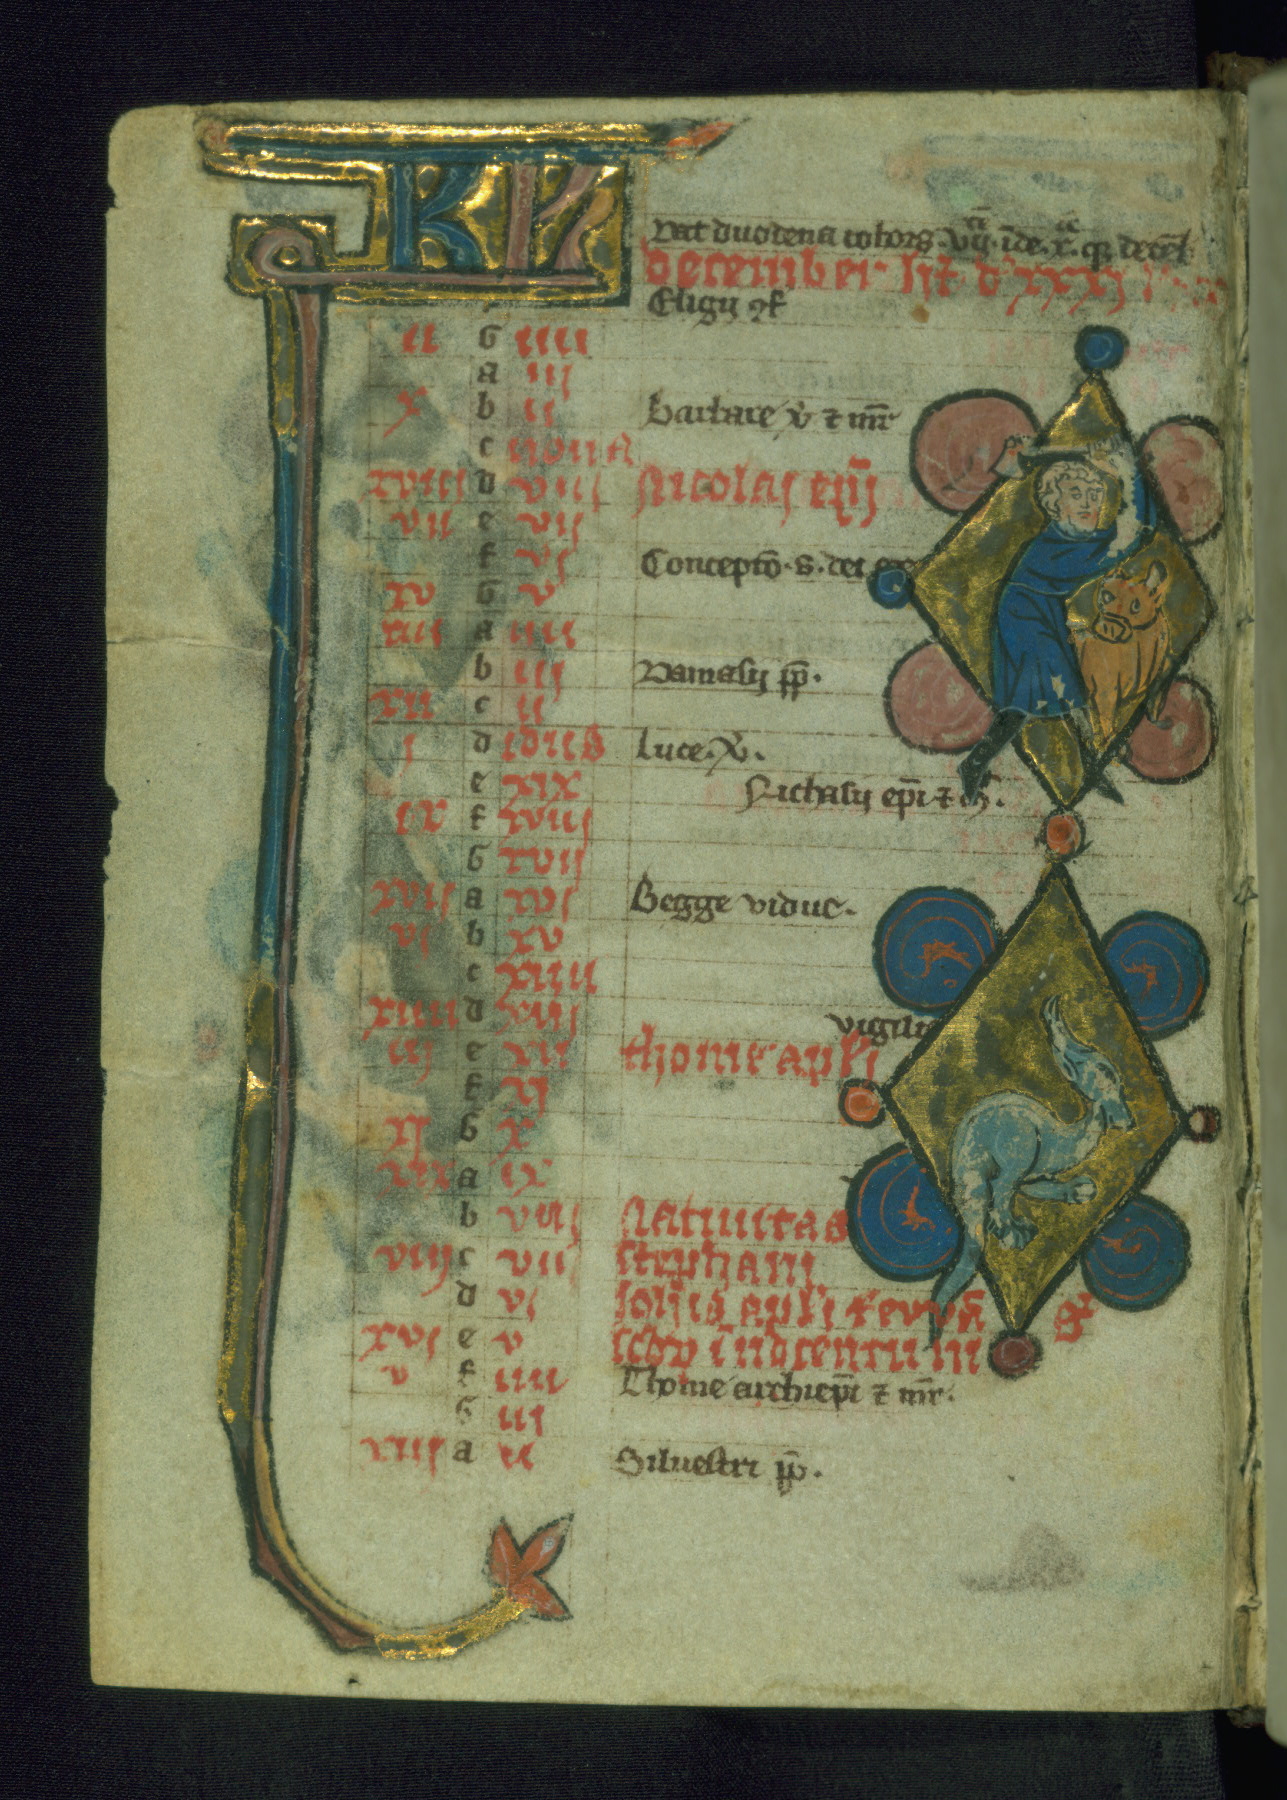 KL
Dat duodena cohors. vij. inde. x. q; decem
December hit dies xxxj
Eligii 9f
ii G iiii
a iij
x b ij Barbare v̄ & mr̄
c nonas
xviij d viij Nicolaj epi
vii e vij
f vj Conceptō. s. dei
xv G v
iiij a iiii
b iij Damasij pp.
xii c ii
j d idus Luce. v̄.
e xix Nichasij epi & m̄.
ix f xviij
G xvij
xvij a xvj Begge vidue.
vj b xv
c xiiii
xiiii d xiij vigilia
iij e xii thome apli
f xj
xj G x
xix a ix
b viij Natiuitas
viij c vii Stephani
d vj Ioh'is apli & euvā
xvj e v scōr innocentium
v f iiii Thome archiepi & mr̄.
G iij
xiij a ii Siluestri pp.